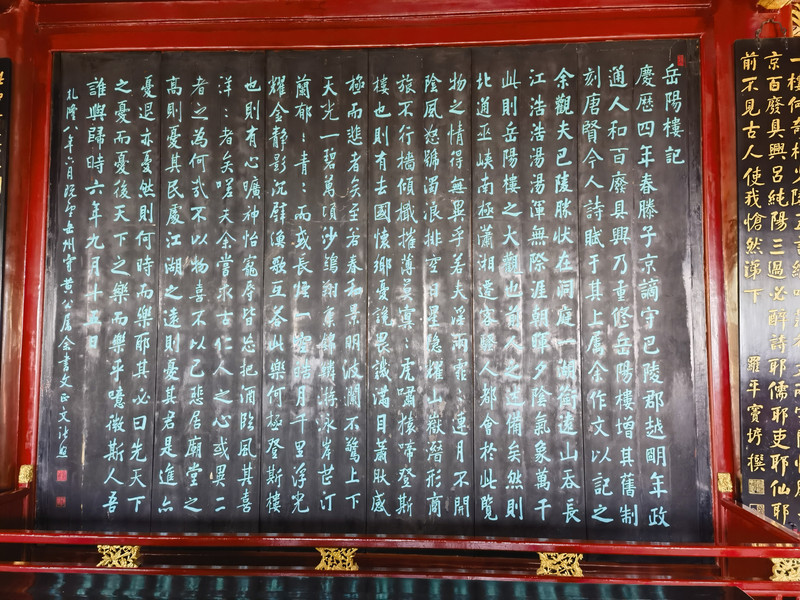 一樓何奇杜少陵五言絕唱范希文兩字關情滕
京百廢具興呂純陽三過必醉詩耶儒耶吏耶仙耶
前不見古人使我愴然涕下
羅平竇垿撰
岳陽樓記
慶歷四年春滕子京謫守巴陵郡越明年政
通人和百廢具興乃重修岳陽樓增其舊制
刻唐賢今人詩賦于其上屬余作文以記之
余觀夫巴陵勝狀在洞庭一湖銜遠山吞長
江浩浩湯湯渾無際涯朝暉夕陰氣象萬千
此則岳陽樓之大觀也前人之述備矣然則
北通巫峽南極瀟湘遷客騷人都會於此覽
物之情得無異乎若夫淫雨霏〻連月不開
陰風怒號濁浪排空日星隱燿山嶽潛形商
旅不行檣傾檝摧薄暮冥〻虎嘯猿啼登斯
樓也則有去國懷鄉憂讒畏譏滿目蕭然感
極而悲者矣至若春和景明波瀾不驚上下
天光一碧萬頃沙鷗翔集錦鱗游泳岸芷汀
蘭郁〻青〻而或長煙一空皓月千里浮光
耀金靜影沉璧漁歌互答此樂何極登斯樓
也則有心曠神怡寵辱皆忘把酒臨風其喜
洋〻者矣嗟夫余嘗求古仁人之心或異二
者之為何哉不以物喜不以己悲居廟堂之
高則憂其民處江湖之遠則憂其君是進亦
憂退亦憂然則何時而樂耶其必曰先天下
之憂而憂後天下之樂而樂乎噫微斯人吾
誰與歸時六年九月十五日
乾隆八年六月既望岳州守黃公屬余書文正文張照